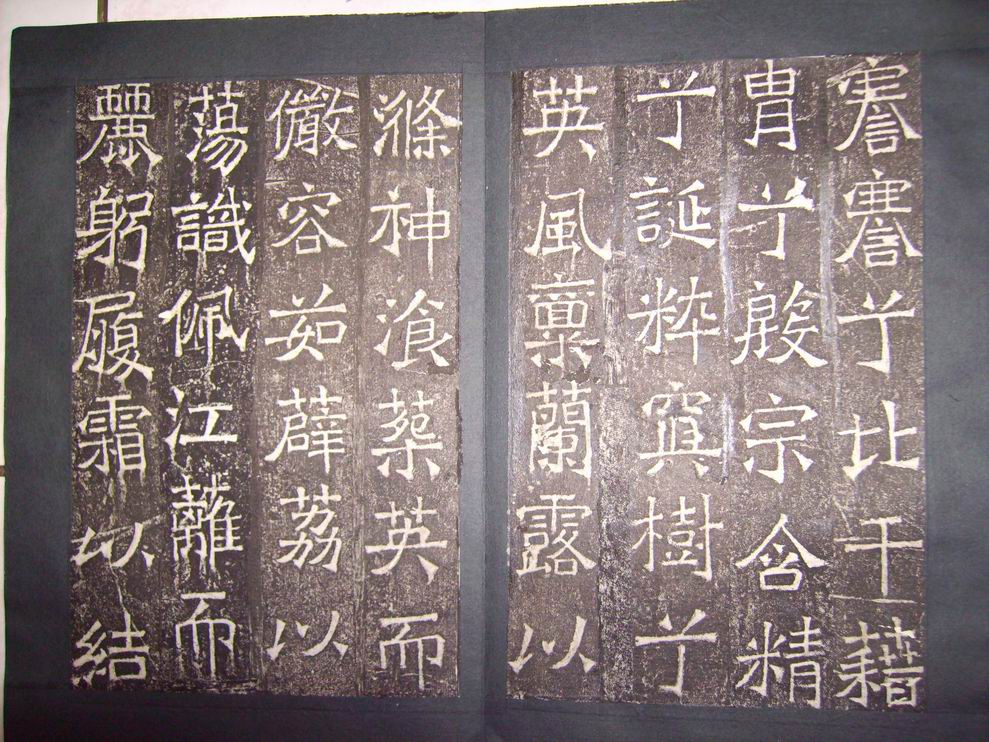 謇謇兮比干藉
胄兮殷宗含精
兮誕粹冥樹兮
英風稟蘭露以
滌神飡英而
儼容茹薜荔以
蕩識佩江蘺而
麗躬履霜以結